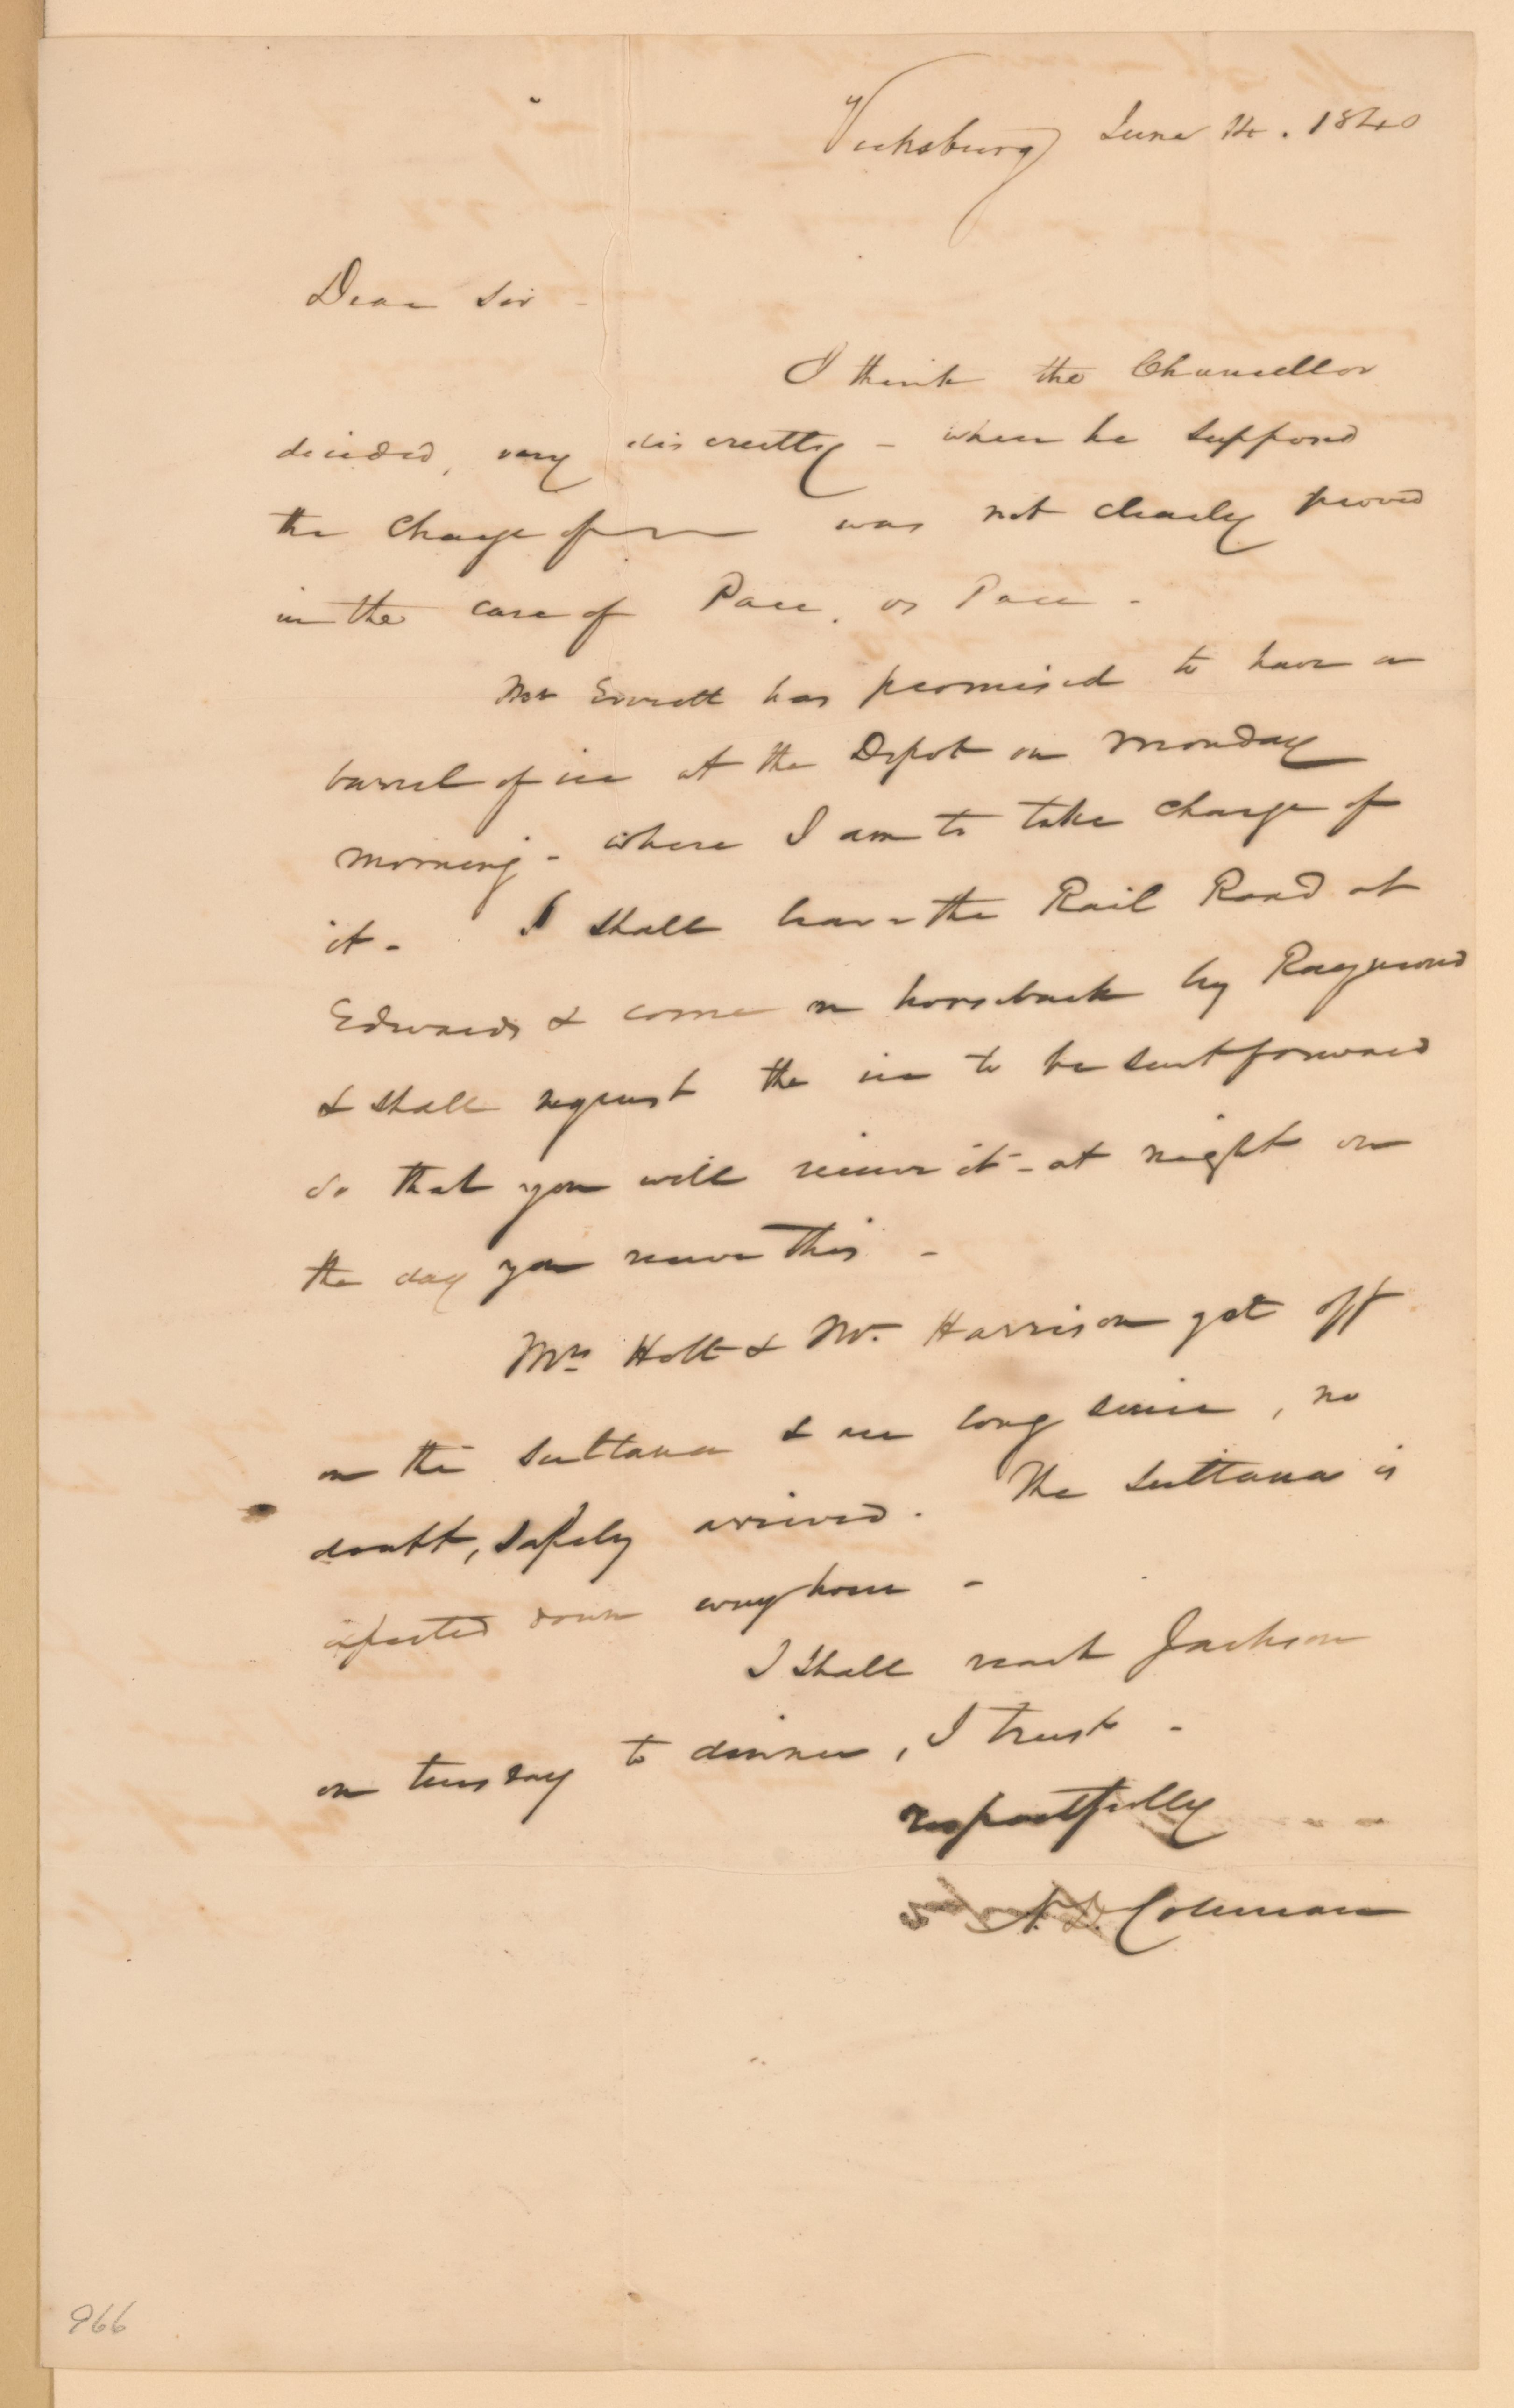 Vicksburg June 14. 1840
Dear Sir -
I think the Chancellor
decided, very discreetly - when he supposed
the charge of was not clearly proved
in the case of Pace, vs Pace -
Mr Everett has promised to have a
barrel of ice at the Depot on Monday
morning - where I am to take charge of
it - I shall leave the Rail Road at
Edwards & come on horseback by Raymond
& shall request the ice to be sent forward
so that you will receive it - at night on
the day you receive this -
Mrs Holt & Mr. Harrison got off
on the Sultana & are long since, no
doubt, safely arrived. The Sultana is
expected down every hour -
I shall reach Jackson
on tuesday to dinner, I trust -
respectfully
Coleman
966